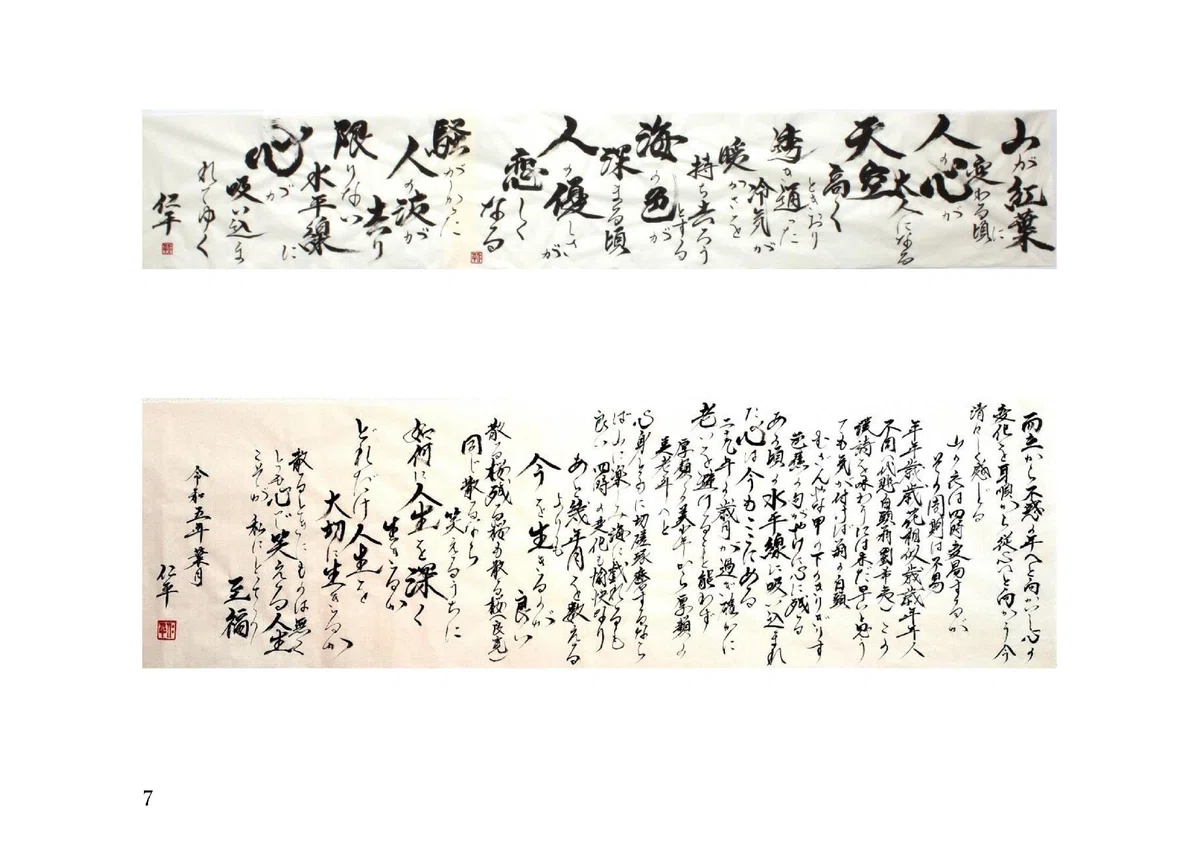 山が紅葉
に
変わる頃
人の心が
大人になる
天空
高く
ときおり
透き通った
冷気が
暖かさを
持ち去ろう
とする
海の色が
深まる頃
人の優しさが
恋しく
なる
騒がしかった
人の波が
去り
限りない
水平線
に
心が
吸い込ま
れてゆく
仁平
而立から不惑の年へと向かいし心の
変化を耳順から従心へと向かう今
清々しく感じる
山の衣は四時変易するが
その周期は不易
年年歳歳花相似歳歳年年人
不同(代悲白頭翁劉希夷)この
漢詩を味わうには未だ早いと思う
ても気が付けば翁の白頭
むざんやな甲の下のきりぎりす
芭蕉の句がやけに心に残る
あの頃の水平線に吸い込まれ
た心は今もここにある
二十九年の歳月が過ぎ確かに
老いを避けることも能わず
厚顔の美少年から厚顔の
美老年へと
心身ともに切磋琢磨するなら
ば山に楽しみ海に戯れるも
良い 四時の変化も愉快なり
あと幾年月を数える
よりも
今を生きるのが
良い
散る桜残る桜も散る桜(良寛)
同じ散るなら
笑えるうちに
如何に人生を深く
生きるか
どれだけ人生を
大切に生きるか
散るときにも悔は無く
心で笑える人生
こそが 私にとっての
至福
令和五年葉月
仁平
7